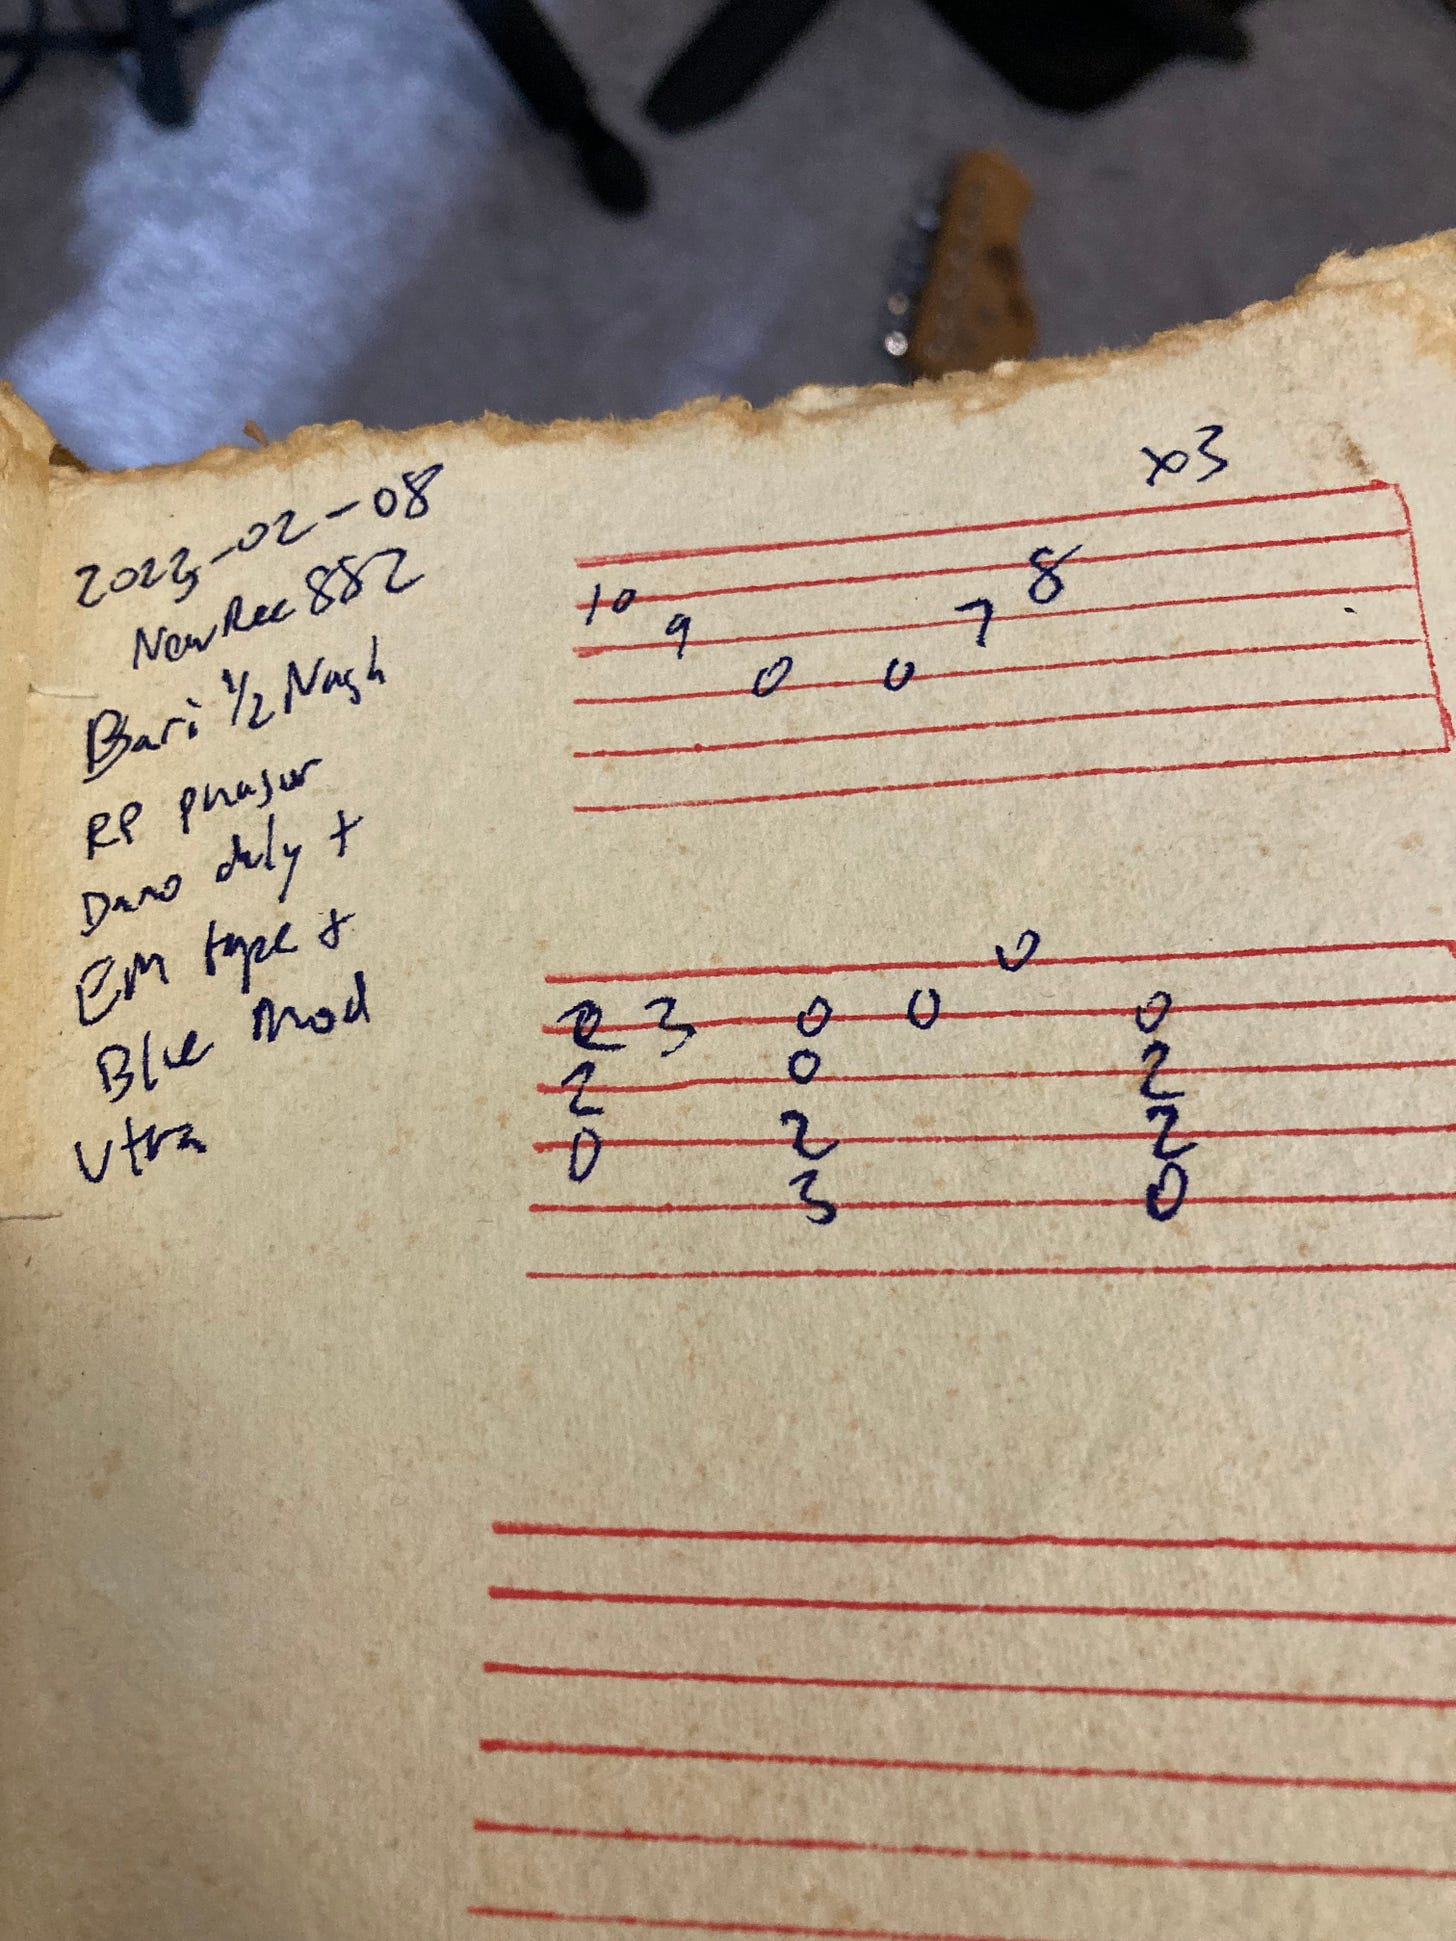 2023-02-08
New Rec 882
Bari 1/2 Nash
RP phasur
Dano dely +
EM tape +
Blue Mod
Utra
x3
10 9 0 0 7 8
0
3 0 0 0
2 0 2
0 2 2
3 0